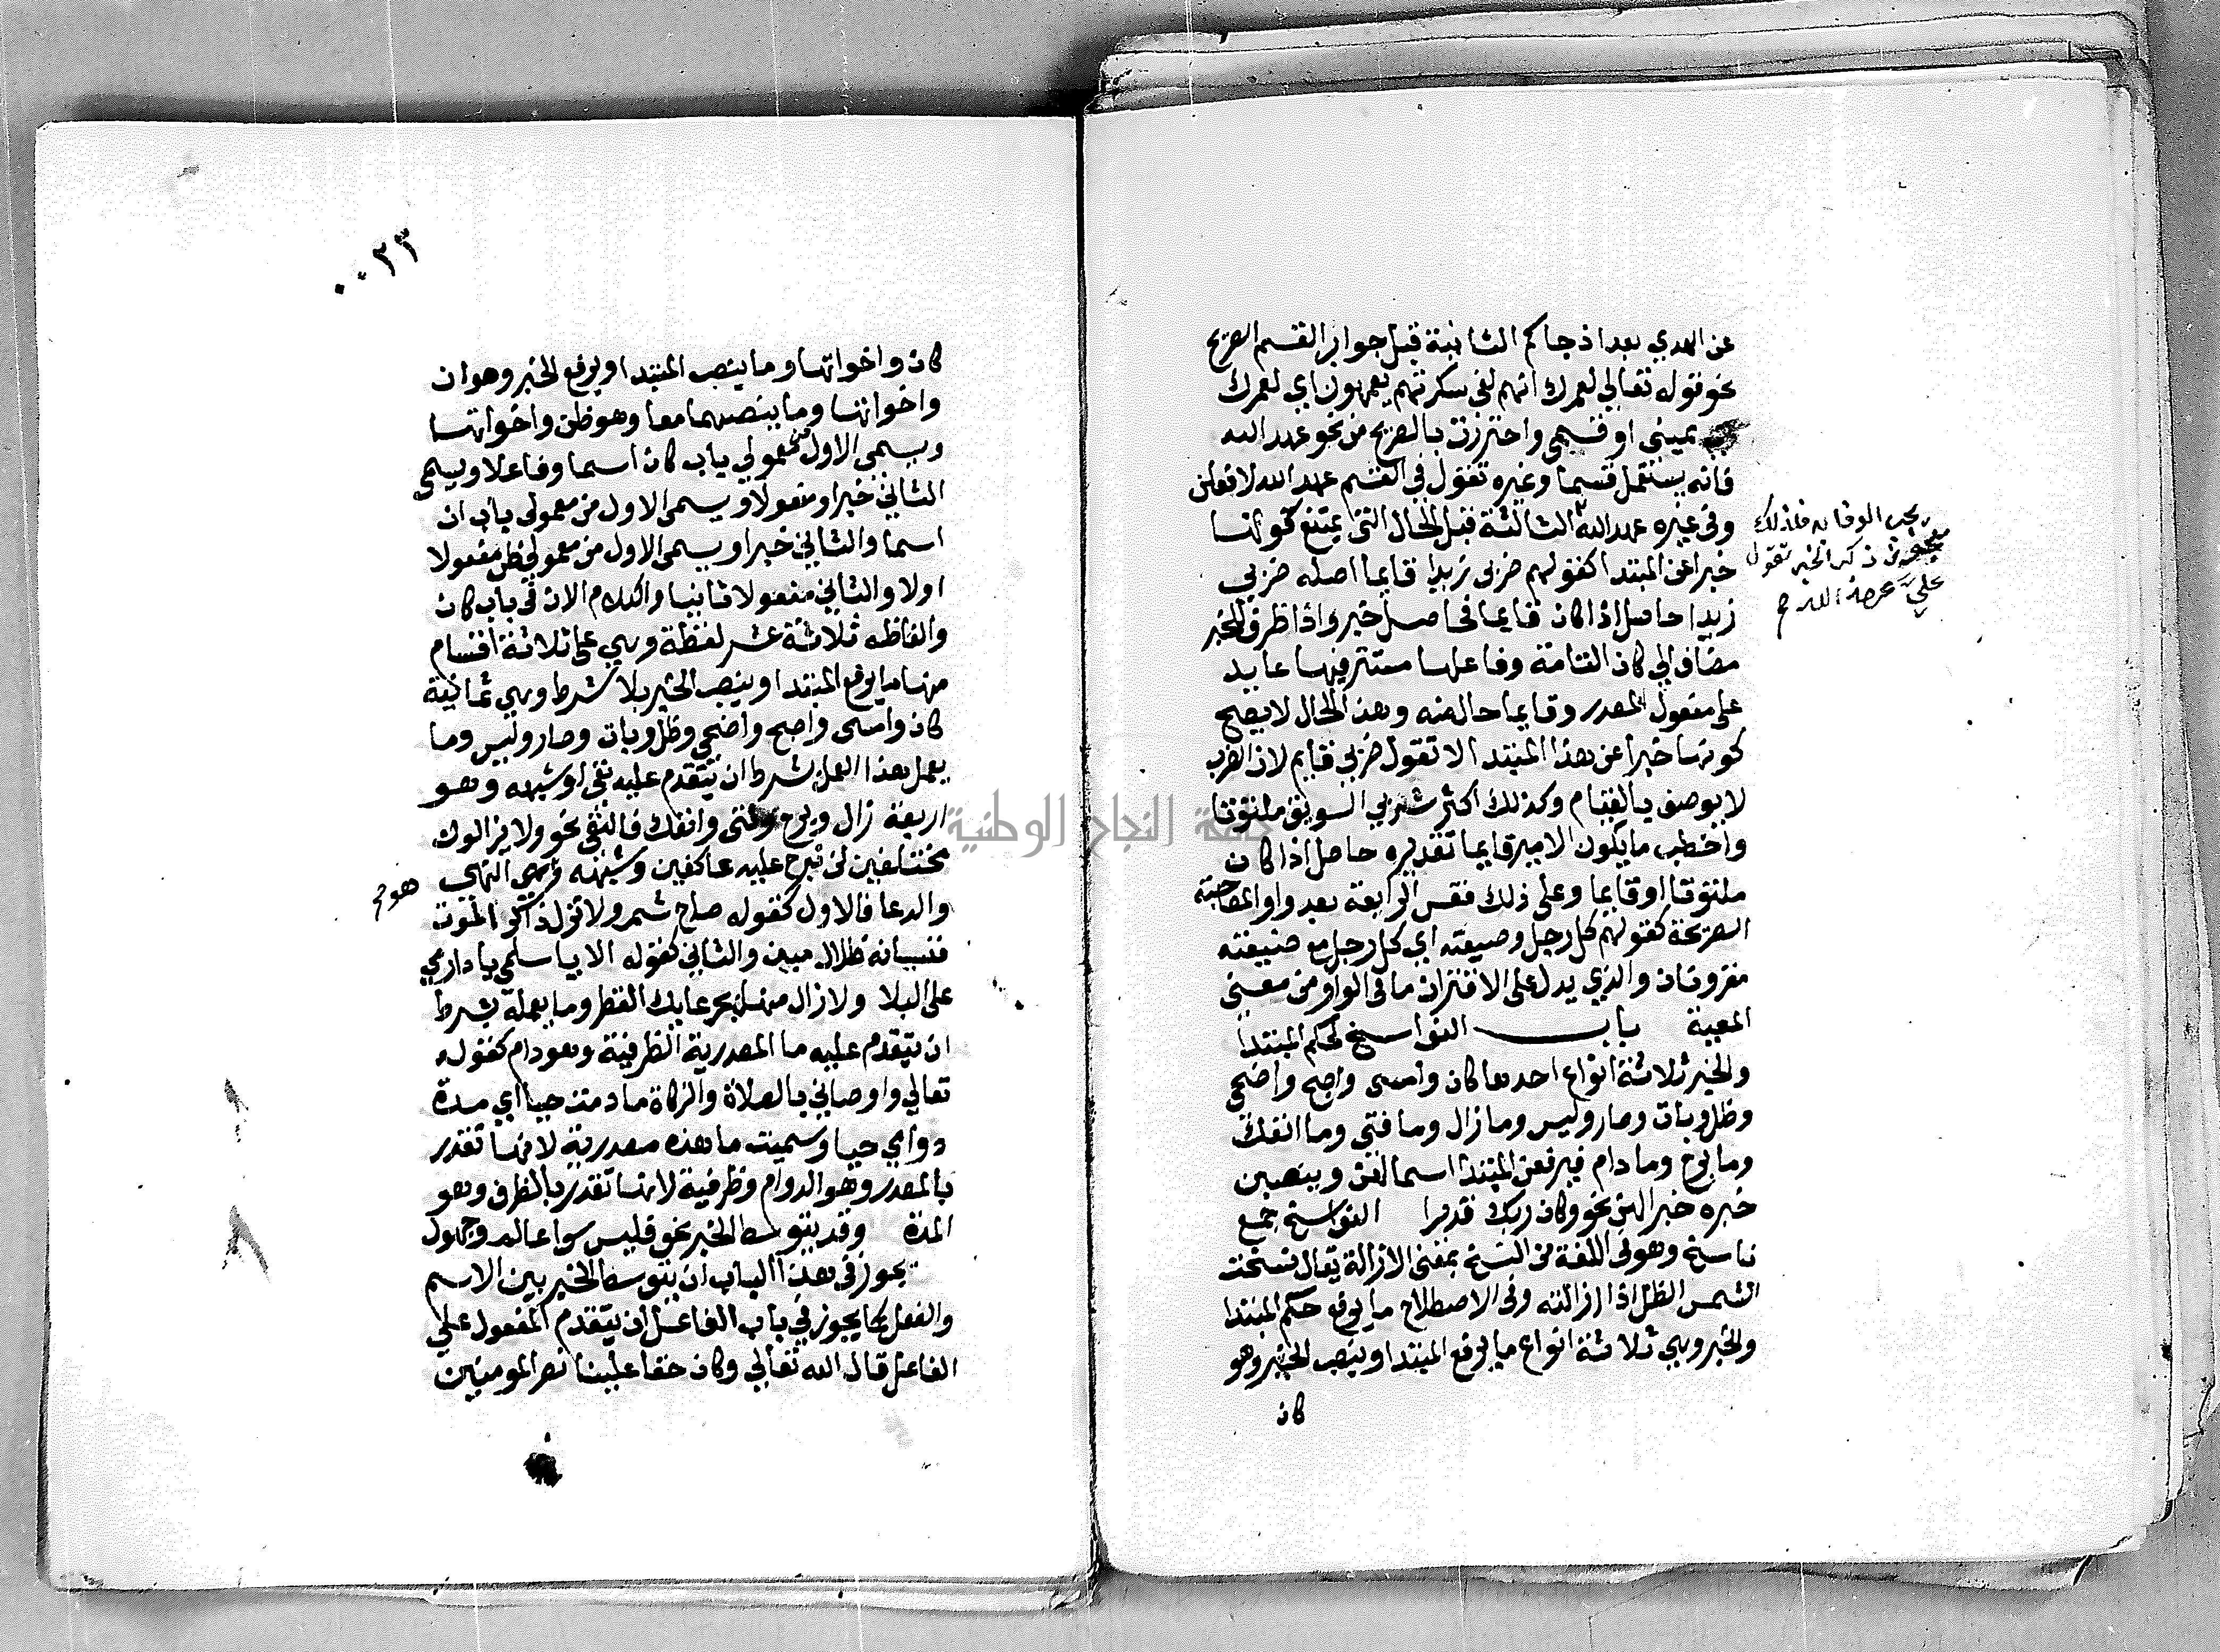 عن الهدي بعد اذ جاكم الثانية قبل جواب القسم الصريح
نحو قوله تعالي لعمرك انهم لفي سكرتهم يعمهون اي لعمرك
يميني او قسمي واحترزت بالصريح من نحو عهد الله
فانه يستعمل قسما وغيره تقول في القسم عهد الله لافعلن
وفي غيره عهد الله الثالثة قبل الحال التي يمتنع كونها
خبرا عن المبتدا كقولهم ضربي زيدا قايما اصله ضربي
زيدا حاصل اذا كان قايما فحاصل خبر واذا ظرف للخبر
مضاف الي كان التامة وفاعلها مستتر فيها عايد
علي مفعول المصدر وقايما حال منه وهذه الحال لا يصح
كونها خبرا عن هذا المبتدا لا تقول ضربي قايم لان الضرب
لا يوصف بالقيام وكذلك اكثر شربي السويق ملتوتا
واخطب ما يكون الامير قايما تقديره حاصل اذا كان
ملتوتا او قايما وعلي ذلك فقس الرابعة بعد واو المصاحبة
الصريحة كقولهم كل رجل وضيعته اي كل رجل مع ضيعته
مقرونان والذي يدل علي الاقتران ما في الواو من معني
المعية باب النواسخ لحكم المبتدا
والخبر ثلاثة انواع احدها كان وامسي واصبح واضحي
وظل وبات وصار وليس وما زال وما فتي وما انفك
وما برح وما دام فيرفعن المبتدا اسما لهن وينصبن
خبره خبرا لهن نحو وكان ربك قديرا النواسخ جمع
ناسخ وهو في اللغة من النسخ بمعني الازالة يقال نسخت
الشمس الظل اذا ازالته وفي الاصطلاح ما يرفع حكم المبتدا
والخبر وهي ثلاثة انواع ما يرفع المبتدا وينصب الخبر وهو
كان
يجب الوفا به فلذلك
ذكر الخبر تقول
علي عهد الله صح
٢٣
كان واخواتها وما ينصب المبتدا ويرفع الخبر وهو ان
واخواتها وما ينصبهما معا وهو ظن واخواتها
ويسمي الاول من معمولي باب كان اسما وفاعلا ويسمي
الثاني خبرا ومفعولا ويسمي الاول من معمولي باب ان
اسما والثاني خبرا ويسمي الاول من معمولي ظن مفعولا
اولا والثاني مفعولا ثانيا والكلام الان في باب كان
والفاظه ثلاثة عشر لفظة وهي علي ثلاثة اقسام
منها ما يرفع المبتدا وينصب الخبر بلا شرط وهي ثمانية
كان وامسي واصبح واضحي وظل وبات وصار وليس وما
يعمل هذا العمل بشرط ان يتقدم عليه نفي او شبهه وهو
اربعة زال وبرح وفتي وانفك فالنفي نحو ولا يزالون
مختلفين لن نبرح عليه عاكفين وشبهه هو النهي
هو صح
والدعا فالاول كقوله صاح شمر ولا تزل ذاكر الموت
فنسيانه ضلال مبين والثاني كقوله الا يا سلمي يا دار مي
علي البلا ولا زال منهلا بجرعايك القطر وما يعمله بشرط
ان يتقدم عليه ما المصدرية الظرفية وهو دام كقوله
تعالي واوصاني بالصلاة والزكاة ما دمت حيا اي مدة
دوامي حيا وسميت ما هذه مصدرية لانها تقدر
بالمصدر وهو الدوام وظرفية لانها تقدر بالظرف وهو
المدة وقد يتوسط الخبر نحو فليس سوا عالم وجهول
يجوز في هذا الباب ان يتوسط الخبر بين الاسم
والفعل كما يجوز في باب الفاعل ان يتقدم المفعول علي
الفاعل قال الله تعالي وكان حقا علينا نصر المومنين
جامعة النجاح الوطنية